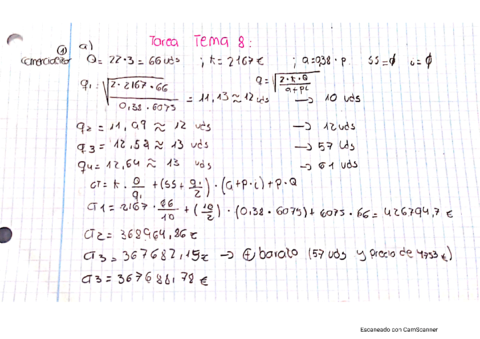 Tarea Tema 8:
① a)
comercializer
Q = 22·3 = 66 uds ; k = 2167 € ; a = 0,38 · p. ss = ∅ i = ∅
q1 = √(2·2167·66 / 0,38·6075) = 11,13 ≈ 12 uds → 10 uds
Q = √(2·k·Q / a+pi)
q2 = 11,97 ≈ 12 uds → 12 uds
q3 = 12,52 ≈ 13 uds → 57 uds
q4 = 12,64 ≈ 13 uds → 61 uds
CT = k · Q/q1 + (ss + q1/2) · (a+p·i) + p·Q
CT1 = 2167 · 66/10 + (10/2) · (0,38 · 6075) + 6075 · 66 = 426794,7 €
CT2 = 368964,86 €
CT3 = 367682,15 € → ⊕ barato (57 uds y precio de 4753 €)
CT3 = 367688,78 €
Escaneado con CamScanner